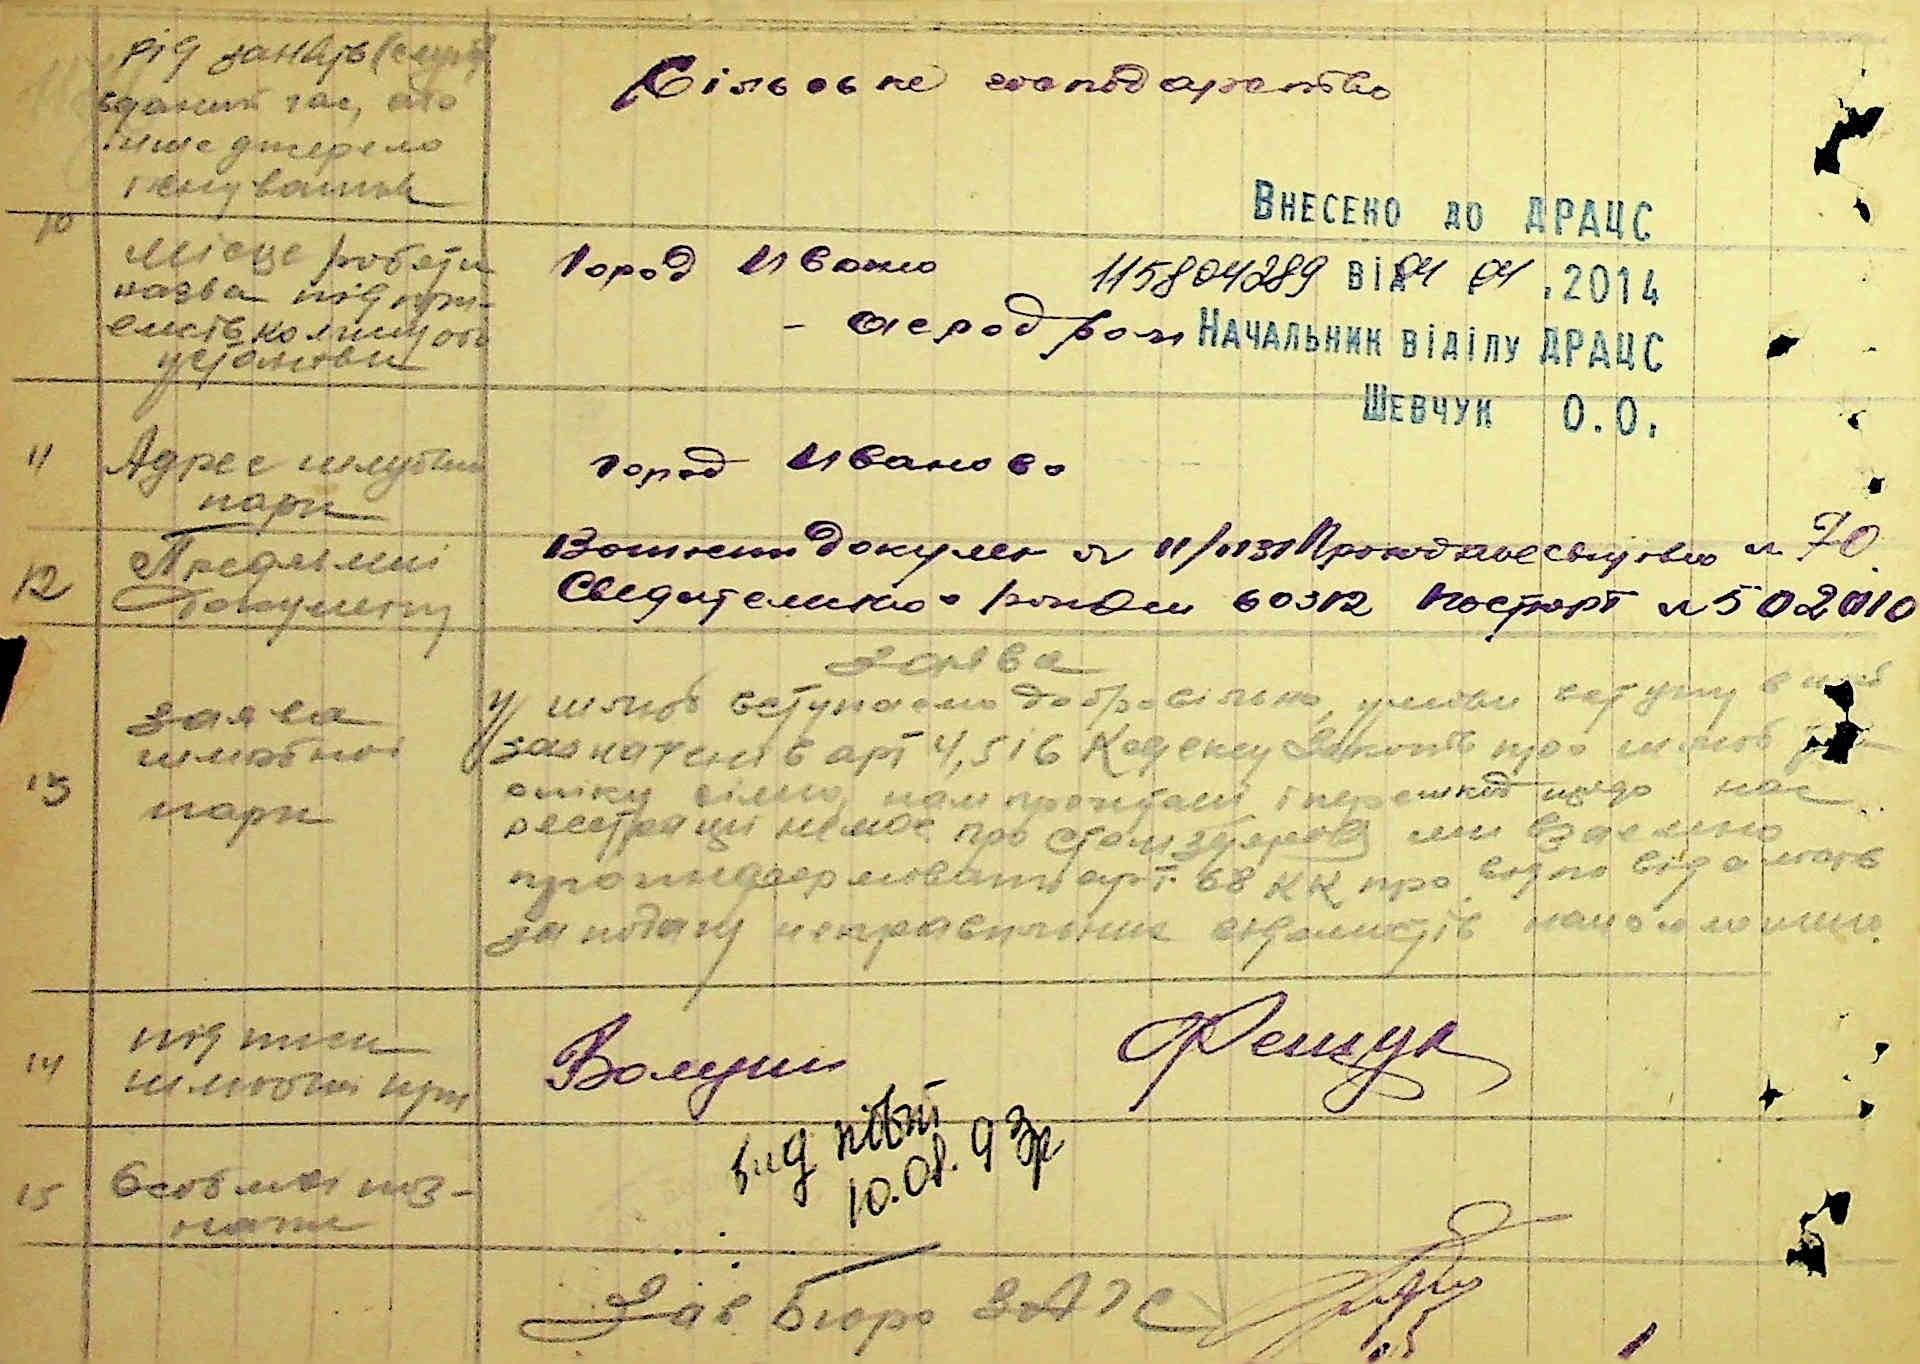 рід занять (служ
в даний час, або
інше джерело
існування
Сільське господарство
Внесено до ДРАЦС
115804289 від 04 04 .2014
Начальник відділу ДРАЦС
Шевчук О.О.
10
Місце роботи
назва підпри-
ємств колишн або
установи
Город Иваново
- аеродром
11
Адрес шлюбни
пари
город Иваново
12
Пред'явлені
документи
Военни докумен № 11/1131 № 70
Свидетельство о рожден 60312 Паспорт № 502010
13
заява
шлюбної
пари
заява
У шлюб вступаємо добровільно, умови вступу в шлюб
зазначені в арт 4, 5 і 6 Кодексу Законів про шлюб
опіку нам прочитані і перешкод щодо нас
реєстрації немає про стан здоров ми взаємно
проинформовани арт. 68 КК про відповідальність
за подачу неправильних відомостів нам оголошено.
14
підписи
шлюбної при
Волушин
Фещук
15
Особливі поз-
нати
вид повт
10.08.93р
Зав. Бюро ЗАГС